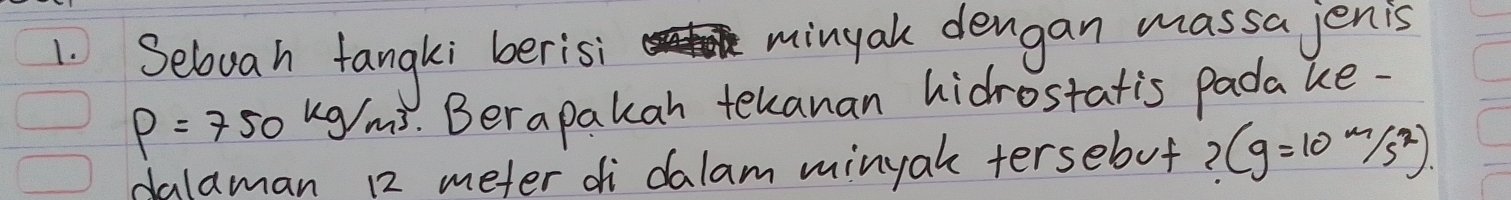 1. Sebuah tangki berisi minyak dengan massa jenis
ρ = 750 kg/m³. Berapakah tekanan hidrostatis pada ke-
dalaman 12 meter di dalam minyak tersebut ? (g = 10 m/s²).